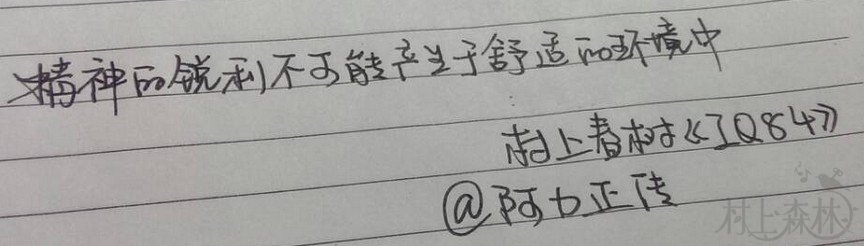 精神的锐利不可能产生于舒适的环境中
村上春树《1Q84》
@阿力正传
村上森林